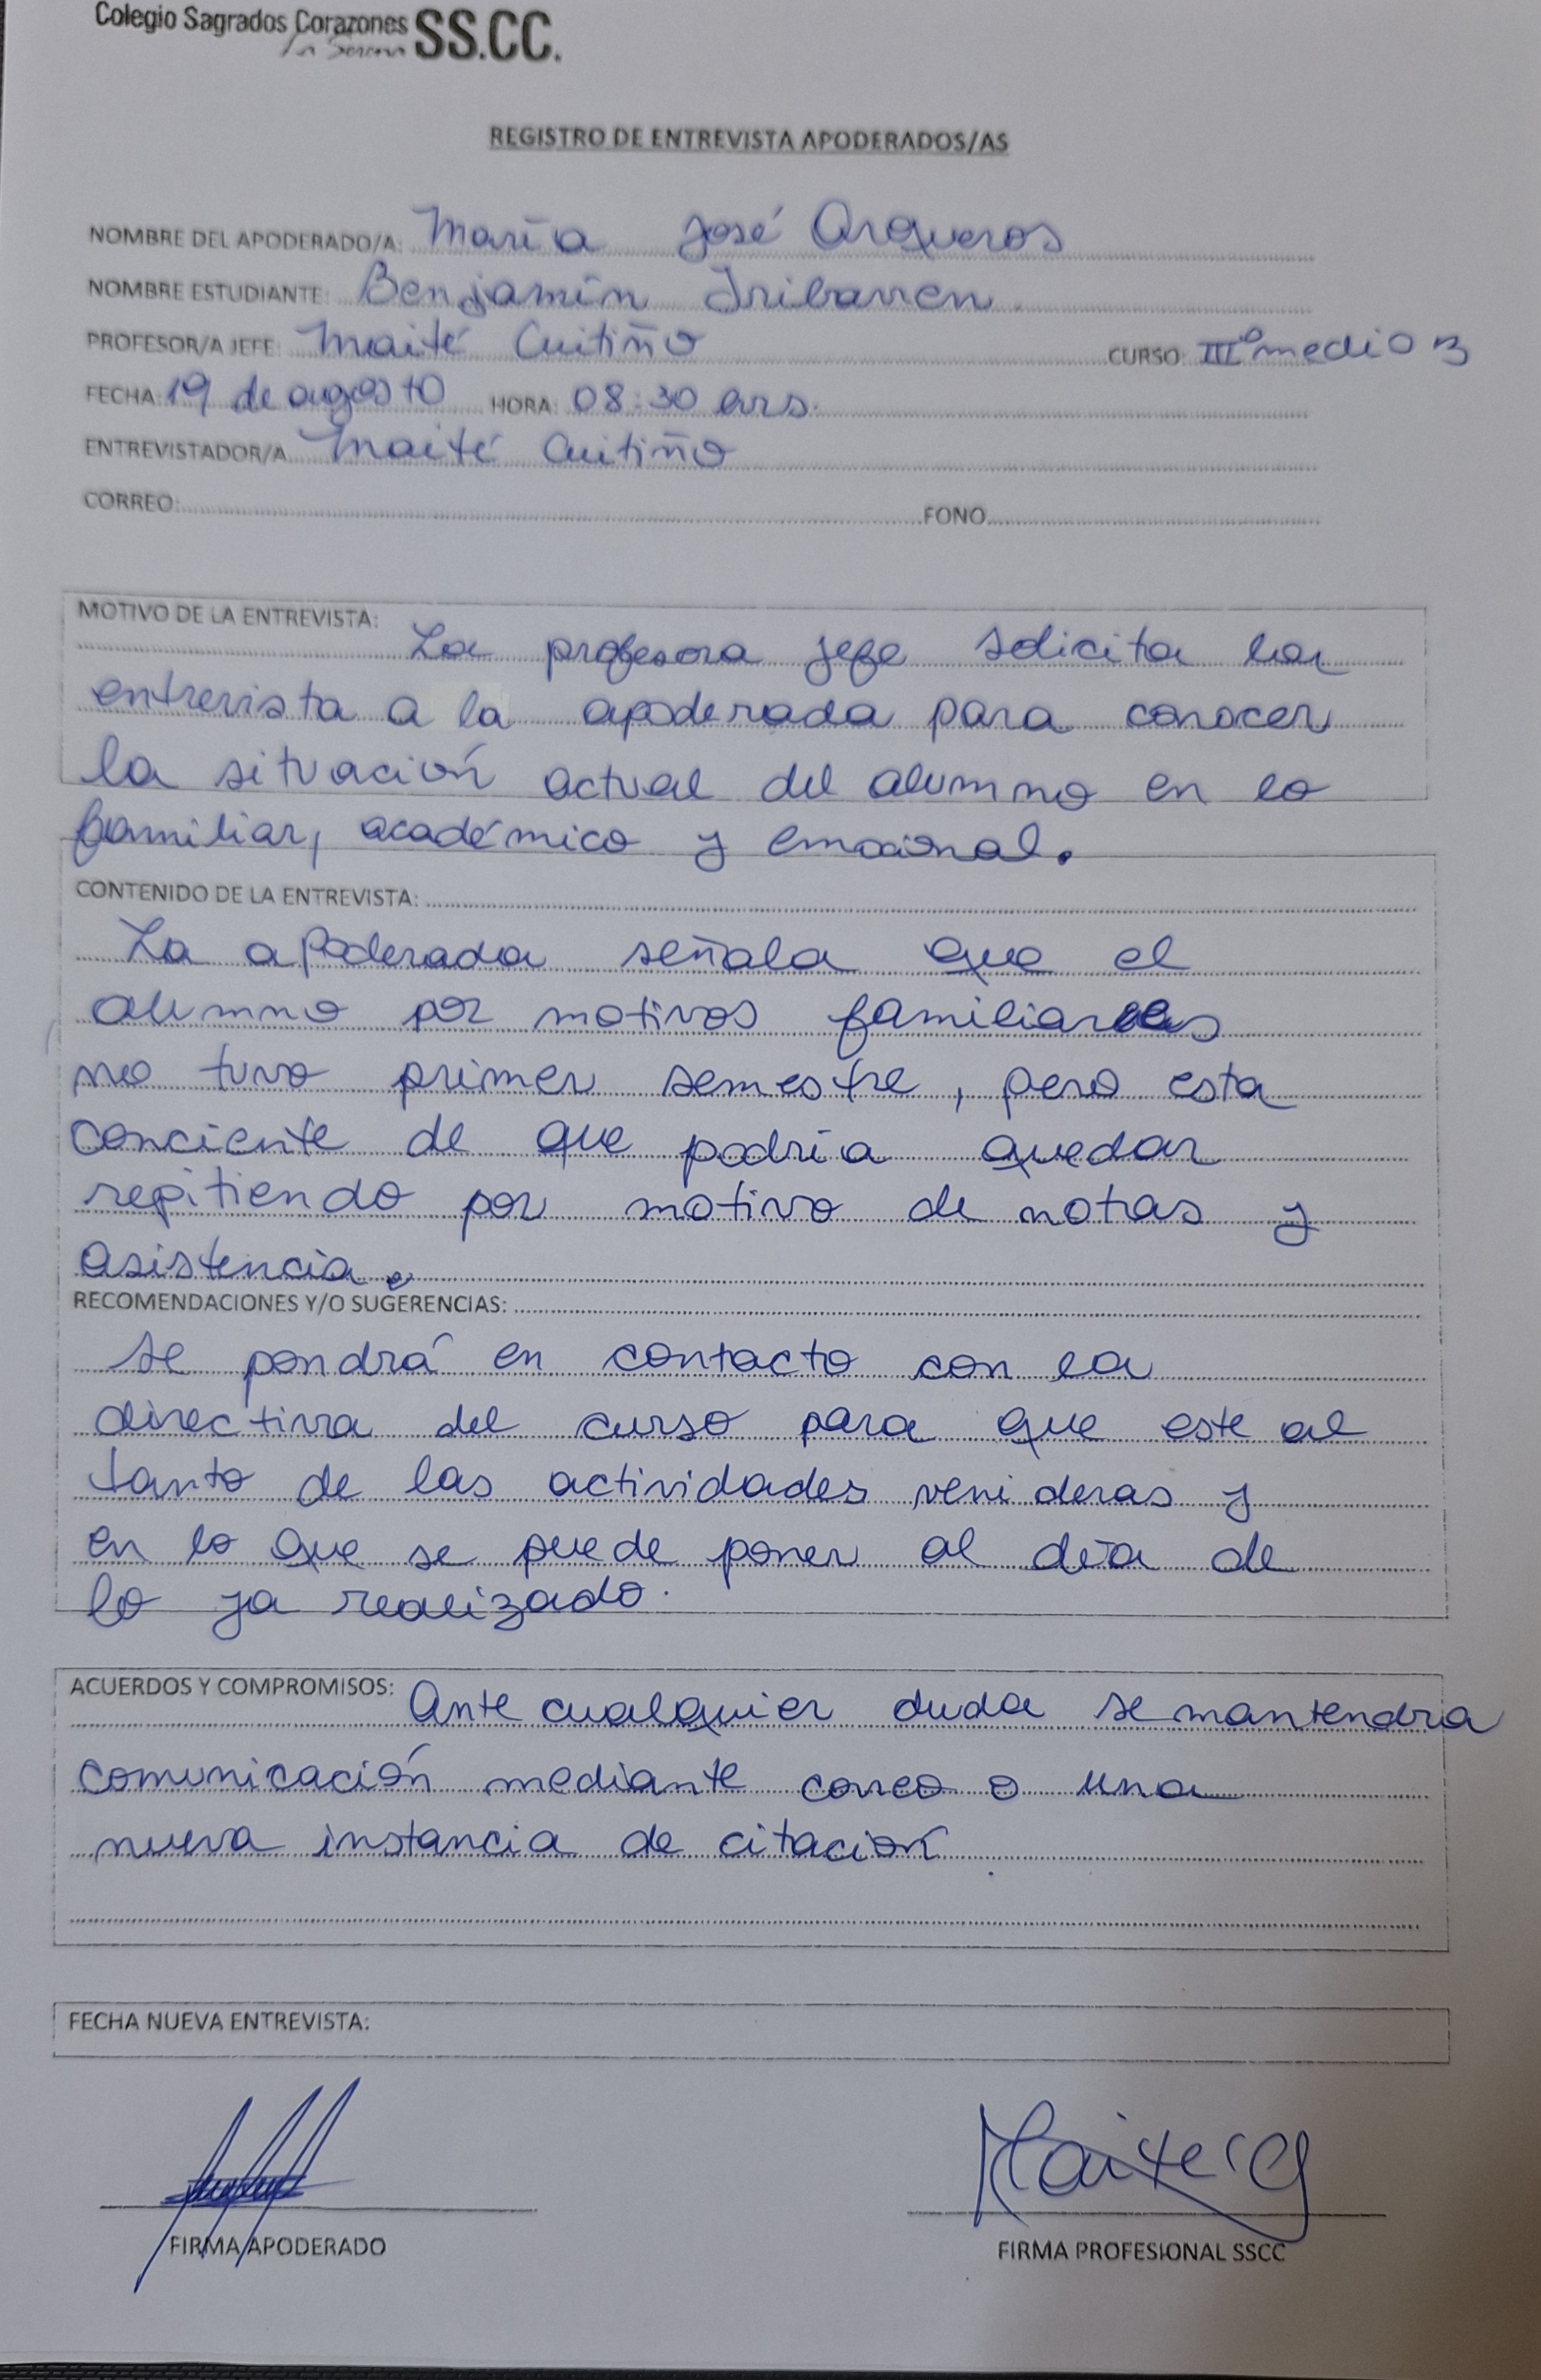 Colegio Sagrados Corazones SS.CC.
La Serena
REGISTRO DE ENTREVISTA APODERADOS/AS
NOMBRE DEL APODERADO/A: María José Arqueros
NOMBRE ESTUDIANTE: Benjamín Iribarren
PROFESOR/A JEFE: Maité Cuitiño CURSO: III° medio B
FECHA: 19 de agosto HORA: 08:30 ars.
ENTREVISTADOR/A Maité Cuitiño
CORREO: FONO
MOTIVO DE LA ENTREVISTA:
La profesora jefe solicita la
entrevista a la apoderada para conocer
la situación actual del alumno en lo
familiar, académico y emocional.
CONTENIDO DE LA ENTREVISTA:
La apoderada señala que el
alumno por motivos familiares
no tuvo primer semestre, pero esta
conciente de que podría quedar
repitiendo por motivo de notas y
asistencia.
RECOMENDACIONES Y/O SUGERENCIAS:
Se pondrá en contacto con la
directiva del curso para que este al
tanto de las actividades venideras y
en lo que se puede poner al día de
lo ya realizado.
ACUERDOS Y COMPROMISOS: Ante cualquier duda se mantendra
comunicación mediante correo o una
nueva instancia de citación.
FECHA NUEVA ENTREVISTA:
Maite CG
FIRMA APODERADO FIRMA PROFESIONAL SSCC